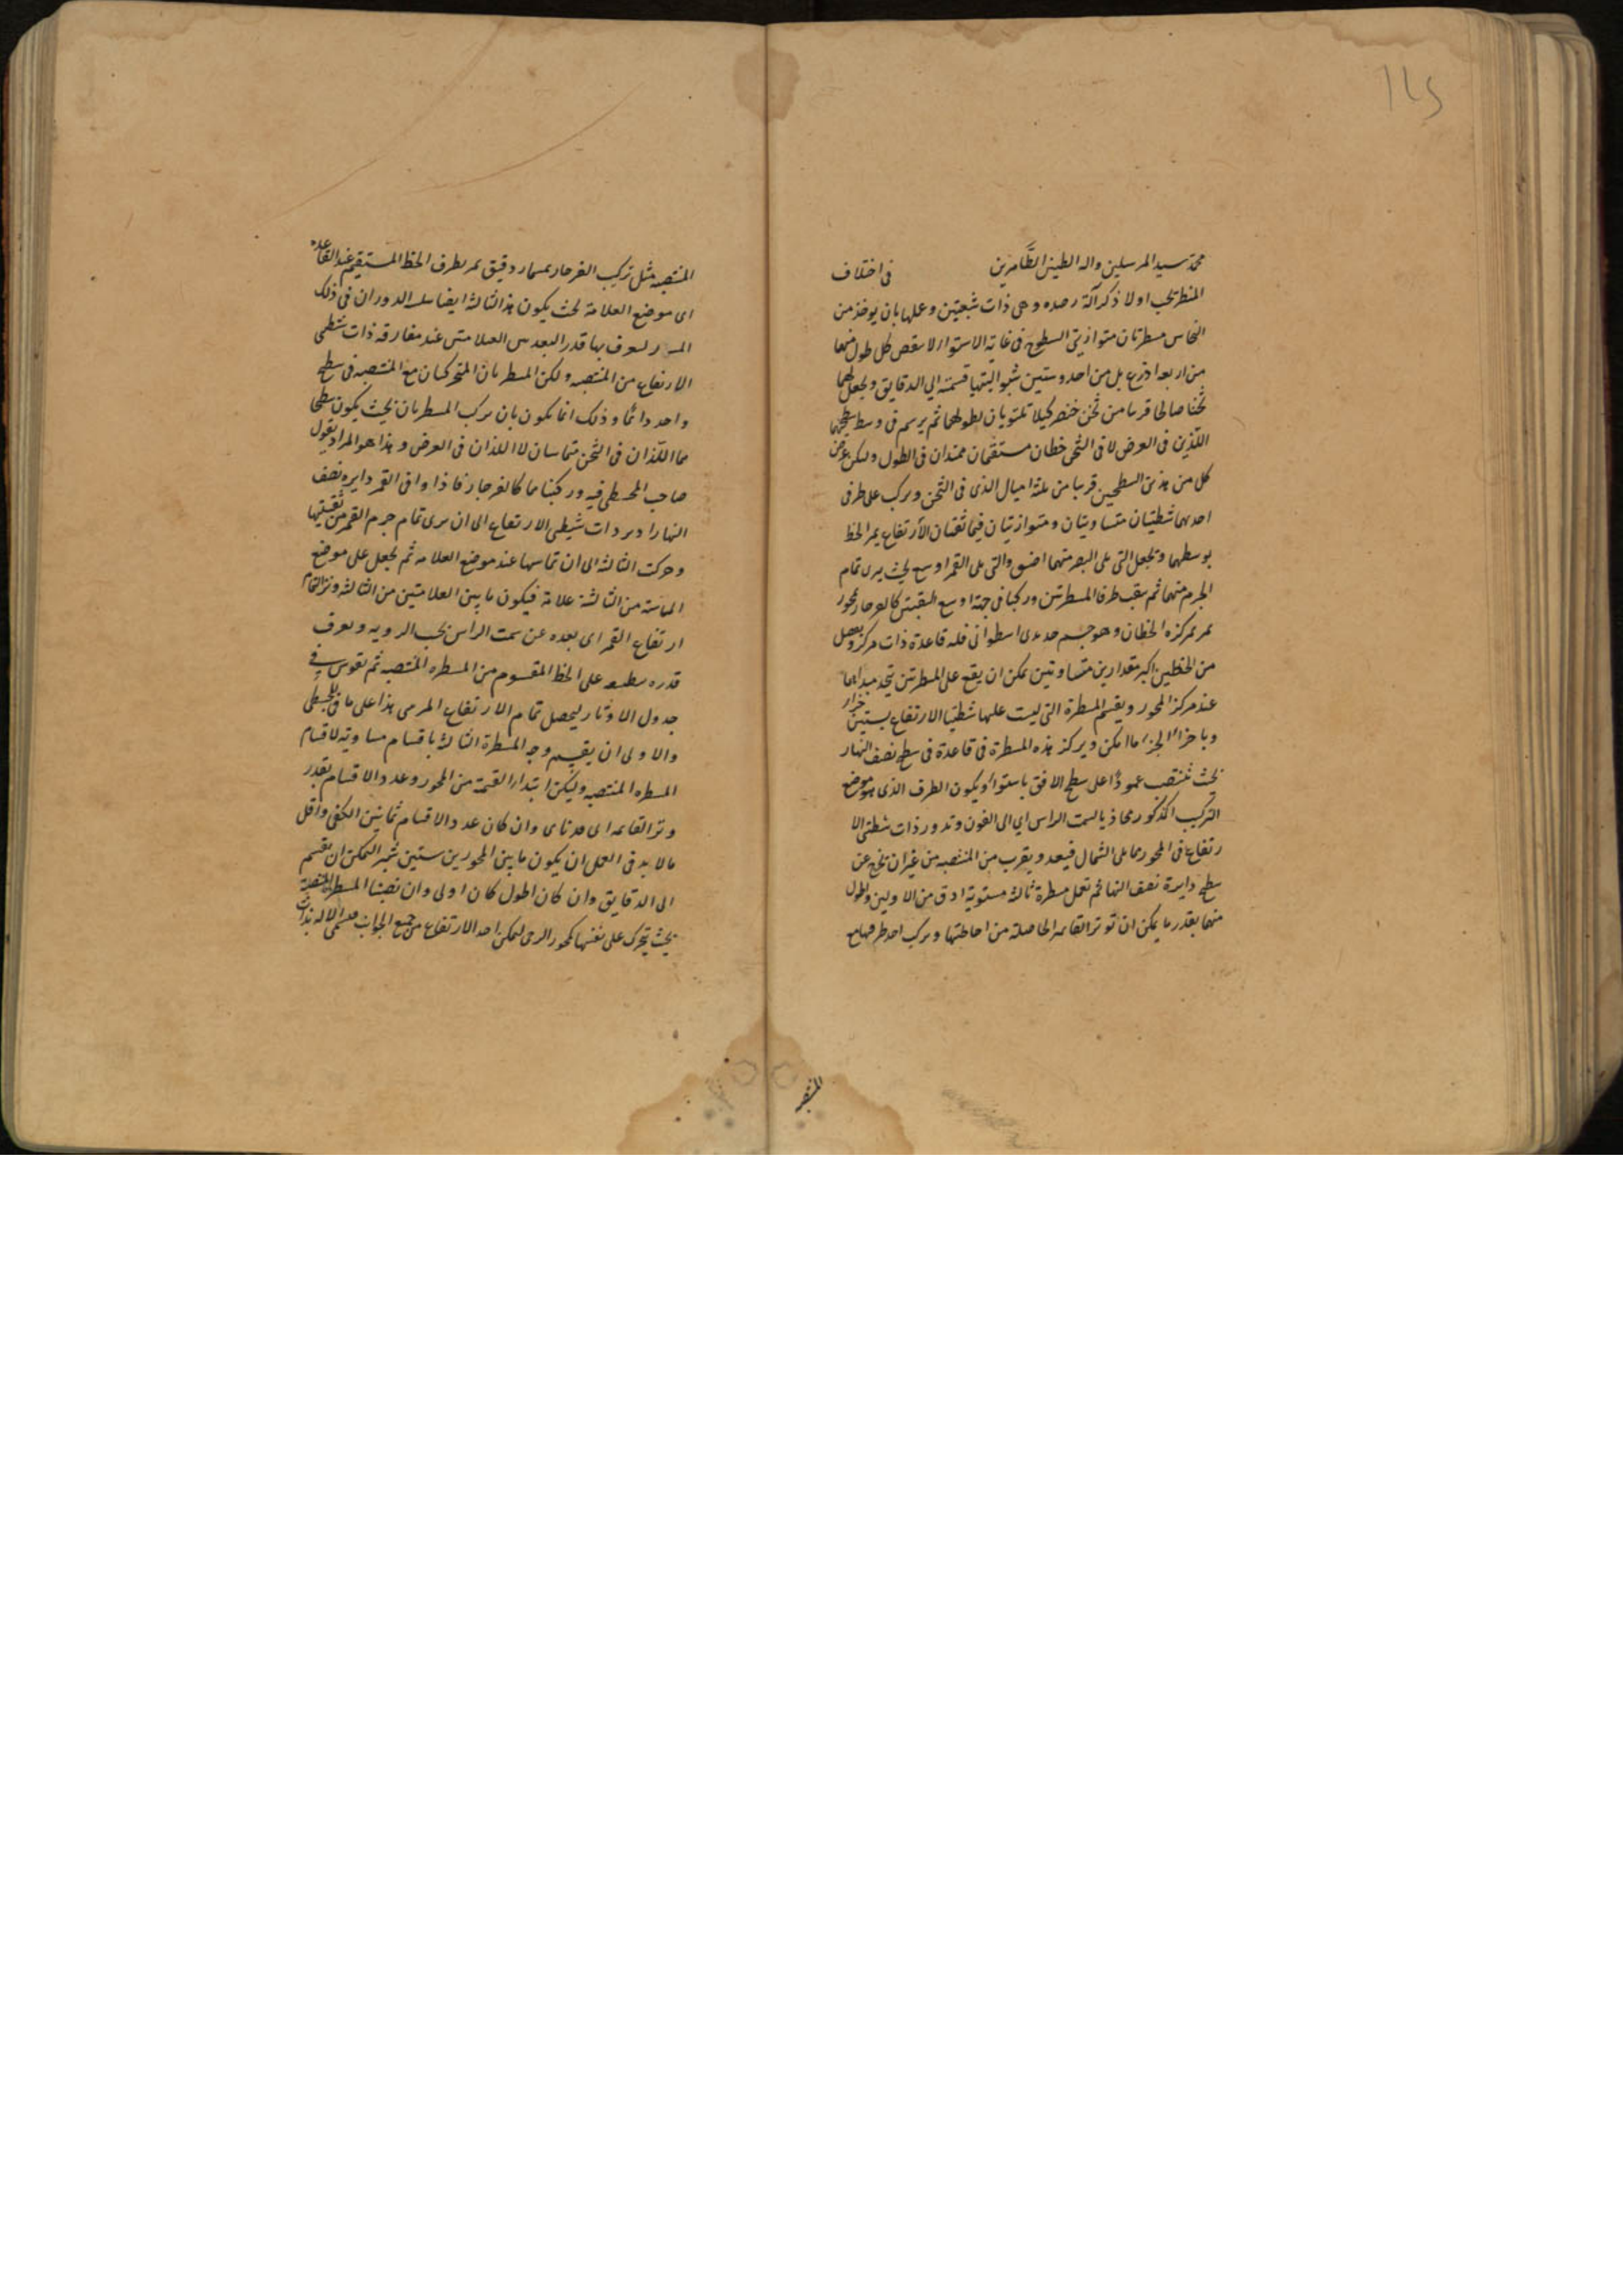 محمد سيد المرسلين واله الطيبين الطاهرين في اختلاف
المنظر يجب اولا ذكر آلة رصده وهي ذات شعبتين وعملها بان يوخذ من
النحاس مسطرتان متوازيتي السطوح في غاية الاستواء لا ينقص كل طول منهما
من اربعة اذرع بل من احد وستين شبرا ليتهيا قسمته الى الدقايق ويجعل لهما
ثخنا صالحا قريبا من ثخن خنصر كيلا تلتويان بطولهما ثم يرسم في وسط سطحيهما
اللذين في العرض لا في الثخن خطان مستقيمان ممتدان في الطول وليكن عرض
كل من هذين السطحين قريبا من ثلثة اميال الذي في الثخن ويركب على طرفي
احدهما شظيتان متساويتان ومتوازيتان فيهما ثقبتان الارتفاع يمر الخط
بوسطهما وتجعل التي تلي البصر منهما اضيق والتي تلي القمر اوسع بحيث يرى تمام
الجرم منهما ثم يثقب طرفا المسطرتين وركبا في جهة اوسع الثقبتين كالفرجار بمحور
يمر بمركزه الخطان وهو جسم حديدي اسطواني فله قاعدة ذات مركز ويفصل
من الخطين اكبر مقدارين متساويتين يمكن ان يقع على المسطرتين يتحد مبداهما
عند مركز المحور ويقسم المسطرة التي ليست عليها شظيتا الارتفاع بستين جزءا
وباجزاء الجزء ما امكن ويركز هذه المسطرة في قاعدة في سطح نصف النهار
بحيث تنتصب عمودا على سطح الافق باستواء ويكون الطرف الذي هو موضع
التركيب المذكور محاذيا لسمت الراس اي الى الفوق وتدور ذات شظيتي الا
رتفاع في المحور مما يلي الشمال فيبعد ويقرب من المنتصبة من غير ان تخرج عن
سطح دايرة نصف النهار ثم تعمل مسطرة ثالثة مستوية ادق من الاوليين واطول
منهما بقدر ما يمكن ان توتر القائمة الحاصلة من احاطتهما ويركب احد طرفيها مع
المنتصبة
المنتصبة مثل تركيب الفرجار بمسمار دقيق يمر بطرف الخط المستقيم عند القاعدة
اي موضع العلامة بحيث يكون هذا الثالثة ايضا سلس الدوران في ذلك
ليعرف بها قدر البعد بين العلامتين عند مفارقة ذات شظيتي
الارتفاع من المنتصبة ولكن المسطرتان المتحركتان مع المنتصبة في سطح
واحد دائما وذلك انما يكون بان يركب المسطرتان بحيث يكون سطحا
هما اللذان في الثخن متماسان لا اللذان في العرض وهذا هو المراد بقول
صاحب المجسطي فيه وركبناها كالفرجار فاذا وافى القمر دايرة نصف
النهار ادير ذات شظيتي الارتفاع الى ان يرى تمام جرم القمر من ثقبتيها
وحركت الثالثة الى ان تماسها عند موضع العلامة ثم يجعل على موضع
المماسة من الثالثة علامة فيكون ما بين العلامتين من الثالثة وتر التمام
ارتفاع القمر اي بعده عن سمت الراس بحسب الروية ويعرف
قدره على الخط المقسوم من المسطرة المنتصبة ثم تقوس في
جدول الاوتار ليحصل تمام الارتفاع المرئي هذا على ما في المجسطي
والاولى ان يقسم وجه المسطرة الثالثة باقسام مساوية لاقسام
المسطرة المنتصبة وليكن ابتداء القسمة من المحور وعدد الاقسام بقدر
وتر القائمة وان كان عدد الاقسام ثمانين لكفى واقل
ما لا بد في العمل ان يكون ما بين المحورين ستين شبرا ليمكن ان يقسم
الى الدقايق وان كان اطول كان اولى وان نصبنا المسطرة المنتصبة
بحيث يتحرك على نفسها كمحور الرحى ليمكن اخذ الارتفاع من جميع الجوانب الالة بذات